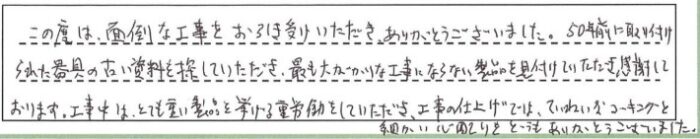 この度は、面倒な工事をお引き受けいただき、ありがとうございました。50年前に取り付け
られた器具の古い資料を探していただき、最も大がかりな工事にならない製品を見付けていただき感謝して
おります。工事中は、とても重い製品を挙げる重労働をしていただき、工事の仕上げでは、ていねいなコーキングと
細かい心配りをとてもありがとうございました。